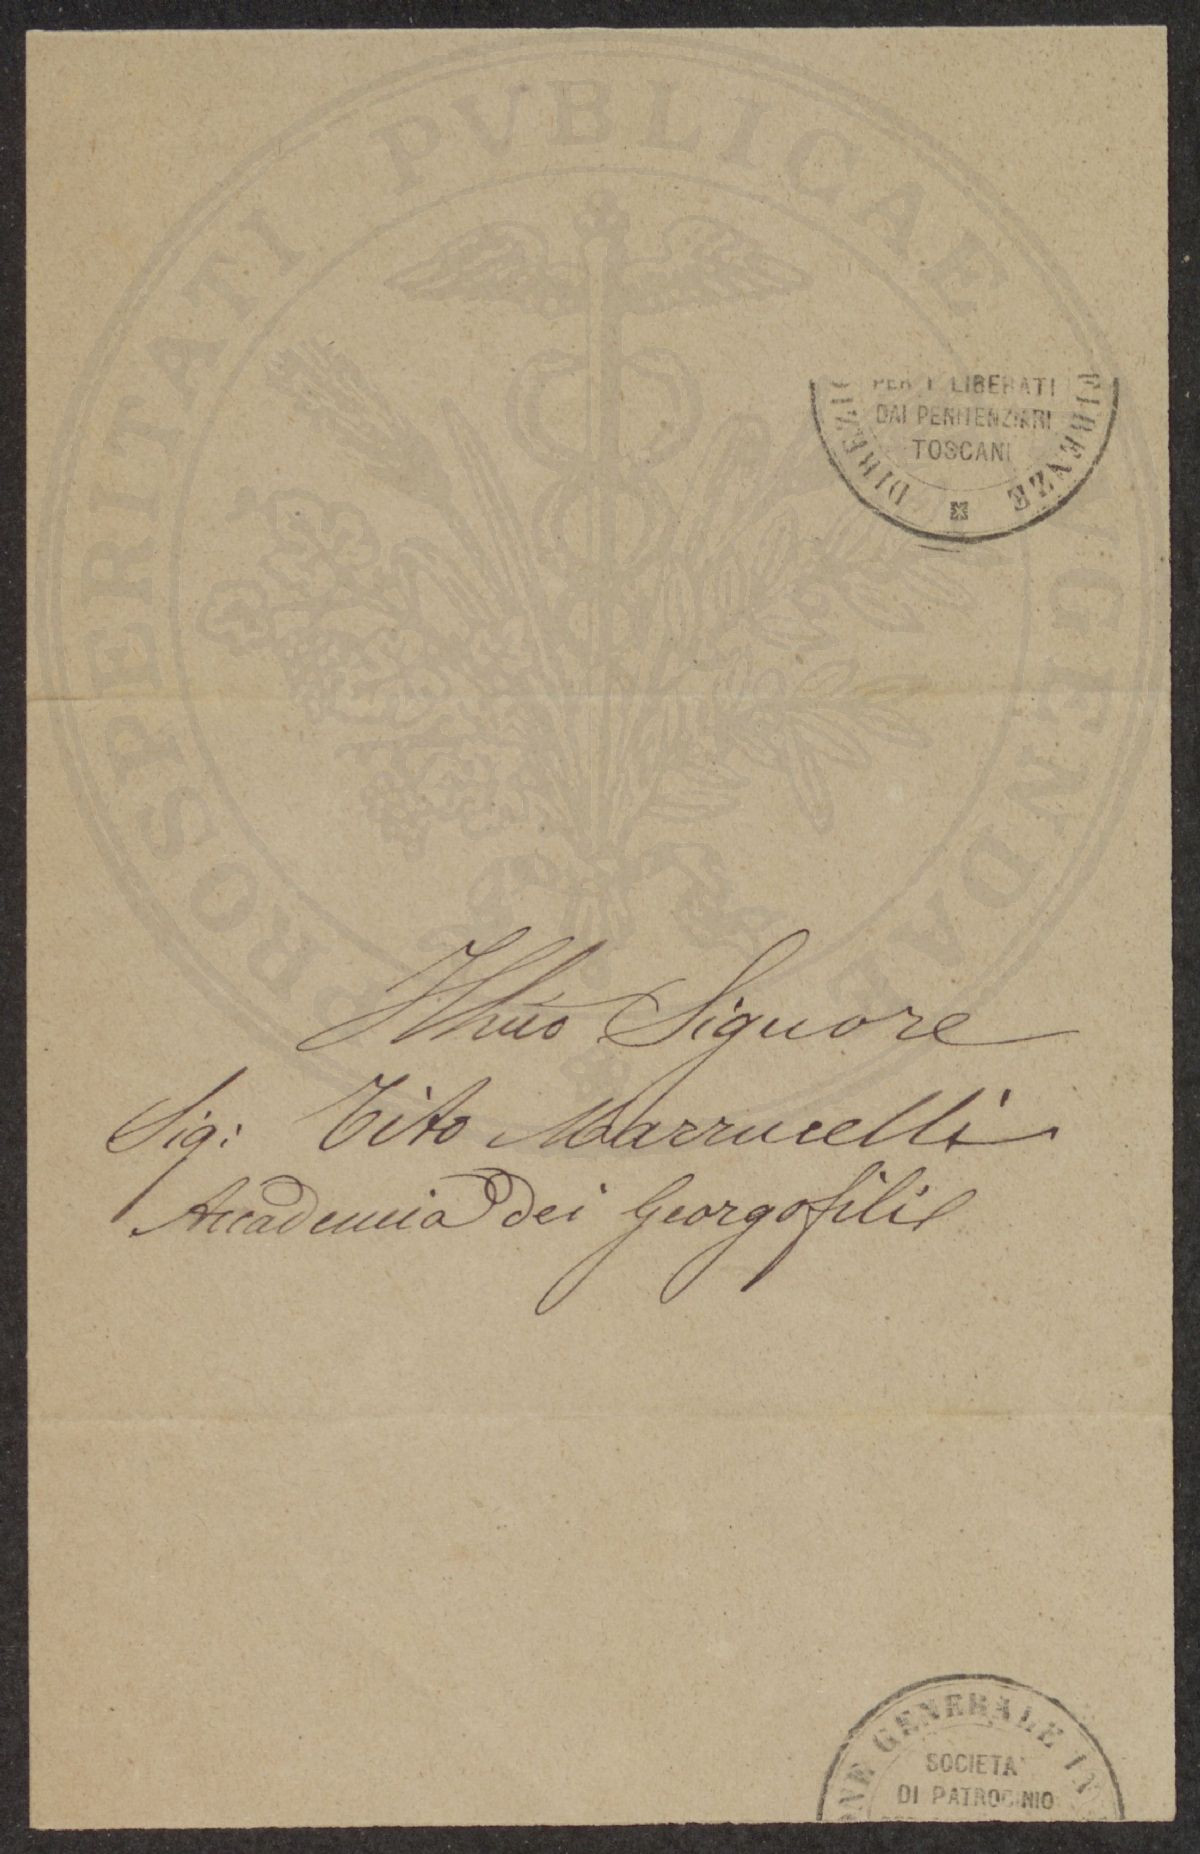 PROSPERITATI PUBLICAE AUGENDAE
PER I LIBERATI
DAI PENITENZIARI
TOSCANI
FIRENZE
Illmo Signore
Sig: Tito Marrucelli
Accademia dei Georgofili
GENERALE IN
SOCIETA'
DI PATROCINIO